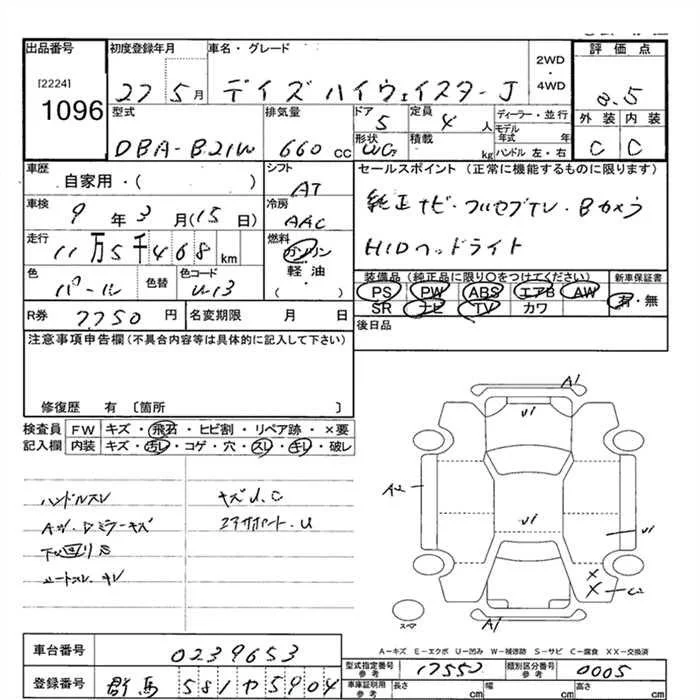 出品番号
[2224]
1096
初度登録年月
27 5月
車名・グレード
デイズ ハイウェイスターJ
2WD
・
4WD
評価点
3.5
外装 内装
C C
型式
DBA-B21W
排気量
660 CC
ドア
5
形状
定員
4 人
積載
kg
ディーラー・並行
モデル
年式 年
ハンドル 左・右
車歴
自家用・( )
シフト
AT
車検
9年3月(15日)
冷房
AAC
走行
11万5千468km
燃料
ガソリン
・
軽油
・
( )
色
パール
色替
色コード
R券
7750 円
名変期限 月 日
セールスポイント (正常に機能するものに限ります)
純正ナビ・フルセグTV・Bカメラ
HIDヘッドライト
装備品(純正品に限り○をつけてください)
PS PW ABS エアB AW
SR ナビ TV カワ
新車保証書
有・無
後日品
注意事項申告欄(不具合内容等は具体的に記入して下さい)
修復歴 有 〔箇所 〕
検査員
記入欄
FW キズ・飛石・ヒビ割・リペア跡・×要
内装 キズ・汚レ・コゲ・穴・スレ・キレ・破レ
ハンドルスレ
キズU.C
A1
U1
A2
U1
U1
X
X C2
A1
スペア
A-キズ E-エクボ U-凹み W-補修跡 S-サビ C-腐食 XX-交換済
車台番号
0239653
登録番号
群馬 581 や 5904
型式指定番号
参考
17552
類別区分番号
参考
0005
車庫証明用
参考
長さ cm
幅 cm
高さ cm